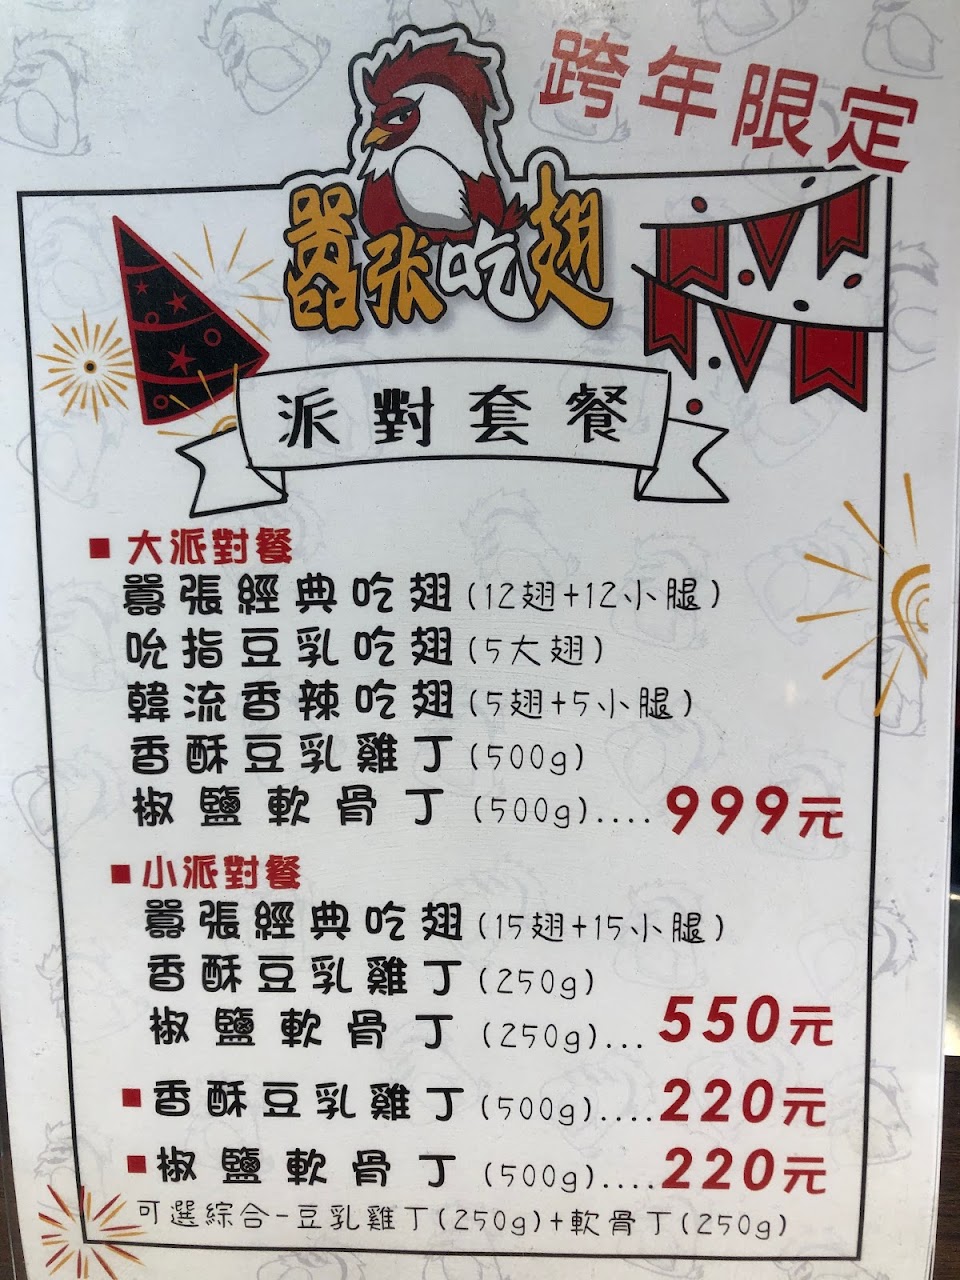 跨年限定
囂张吃翅
派對套餐
■ 大派對餐
囂張經典吃翅(12翅+12小腿)
吮指豆乳吃翅(5大翅)
韓流香辣吃翅(5翅+5小腿)
香酥豆乳雞丁(500g)
椒鹽軟骨丁(500g)....999元
■ 小派對餐
囂張經典吃翅(15翅+15小腿)
香酥豆乳雞丁(250g)
椒鹽軟骨丁(250g)...550元
■ 香酥豆乳雞丁(500g)....220元
■ 椒鹽軟骨丁(500g)....220元
可選綜合-豆乳雞丁(250g)+軟骨丁(250g)